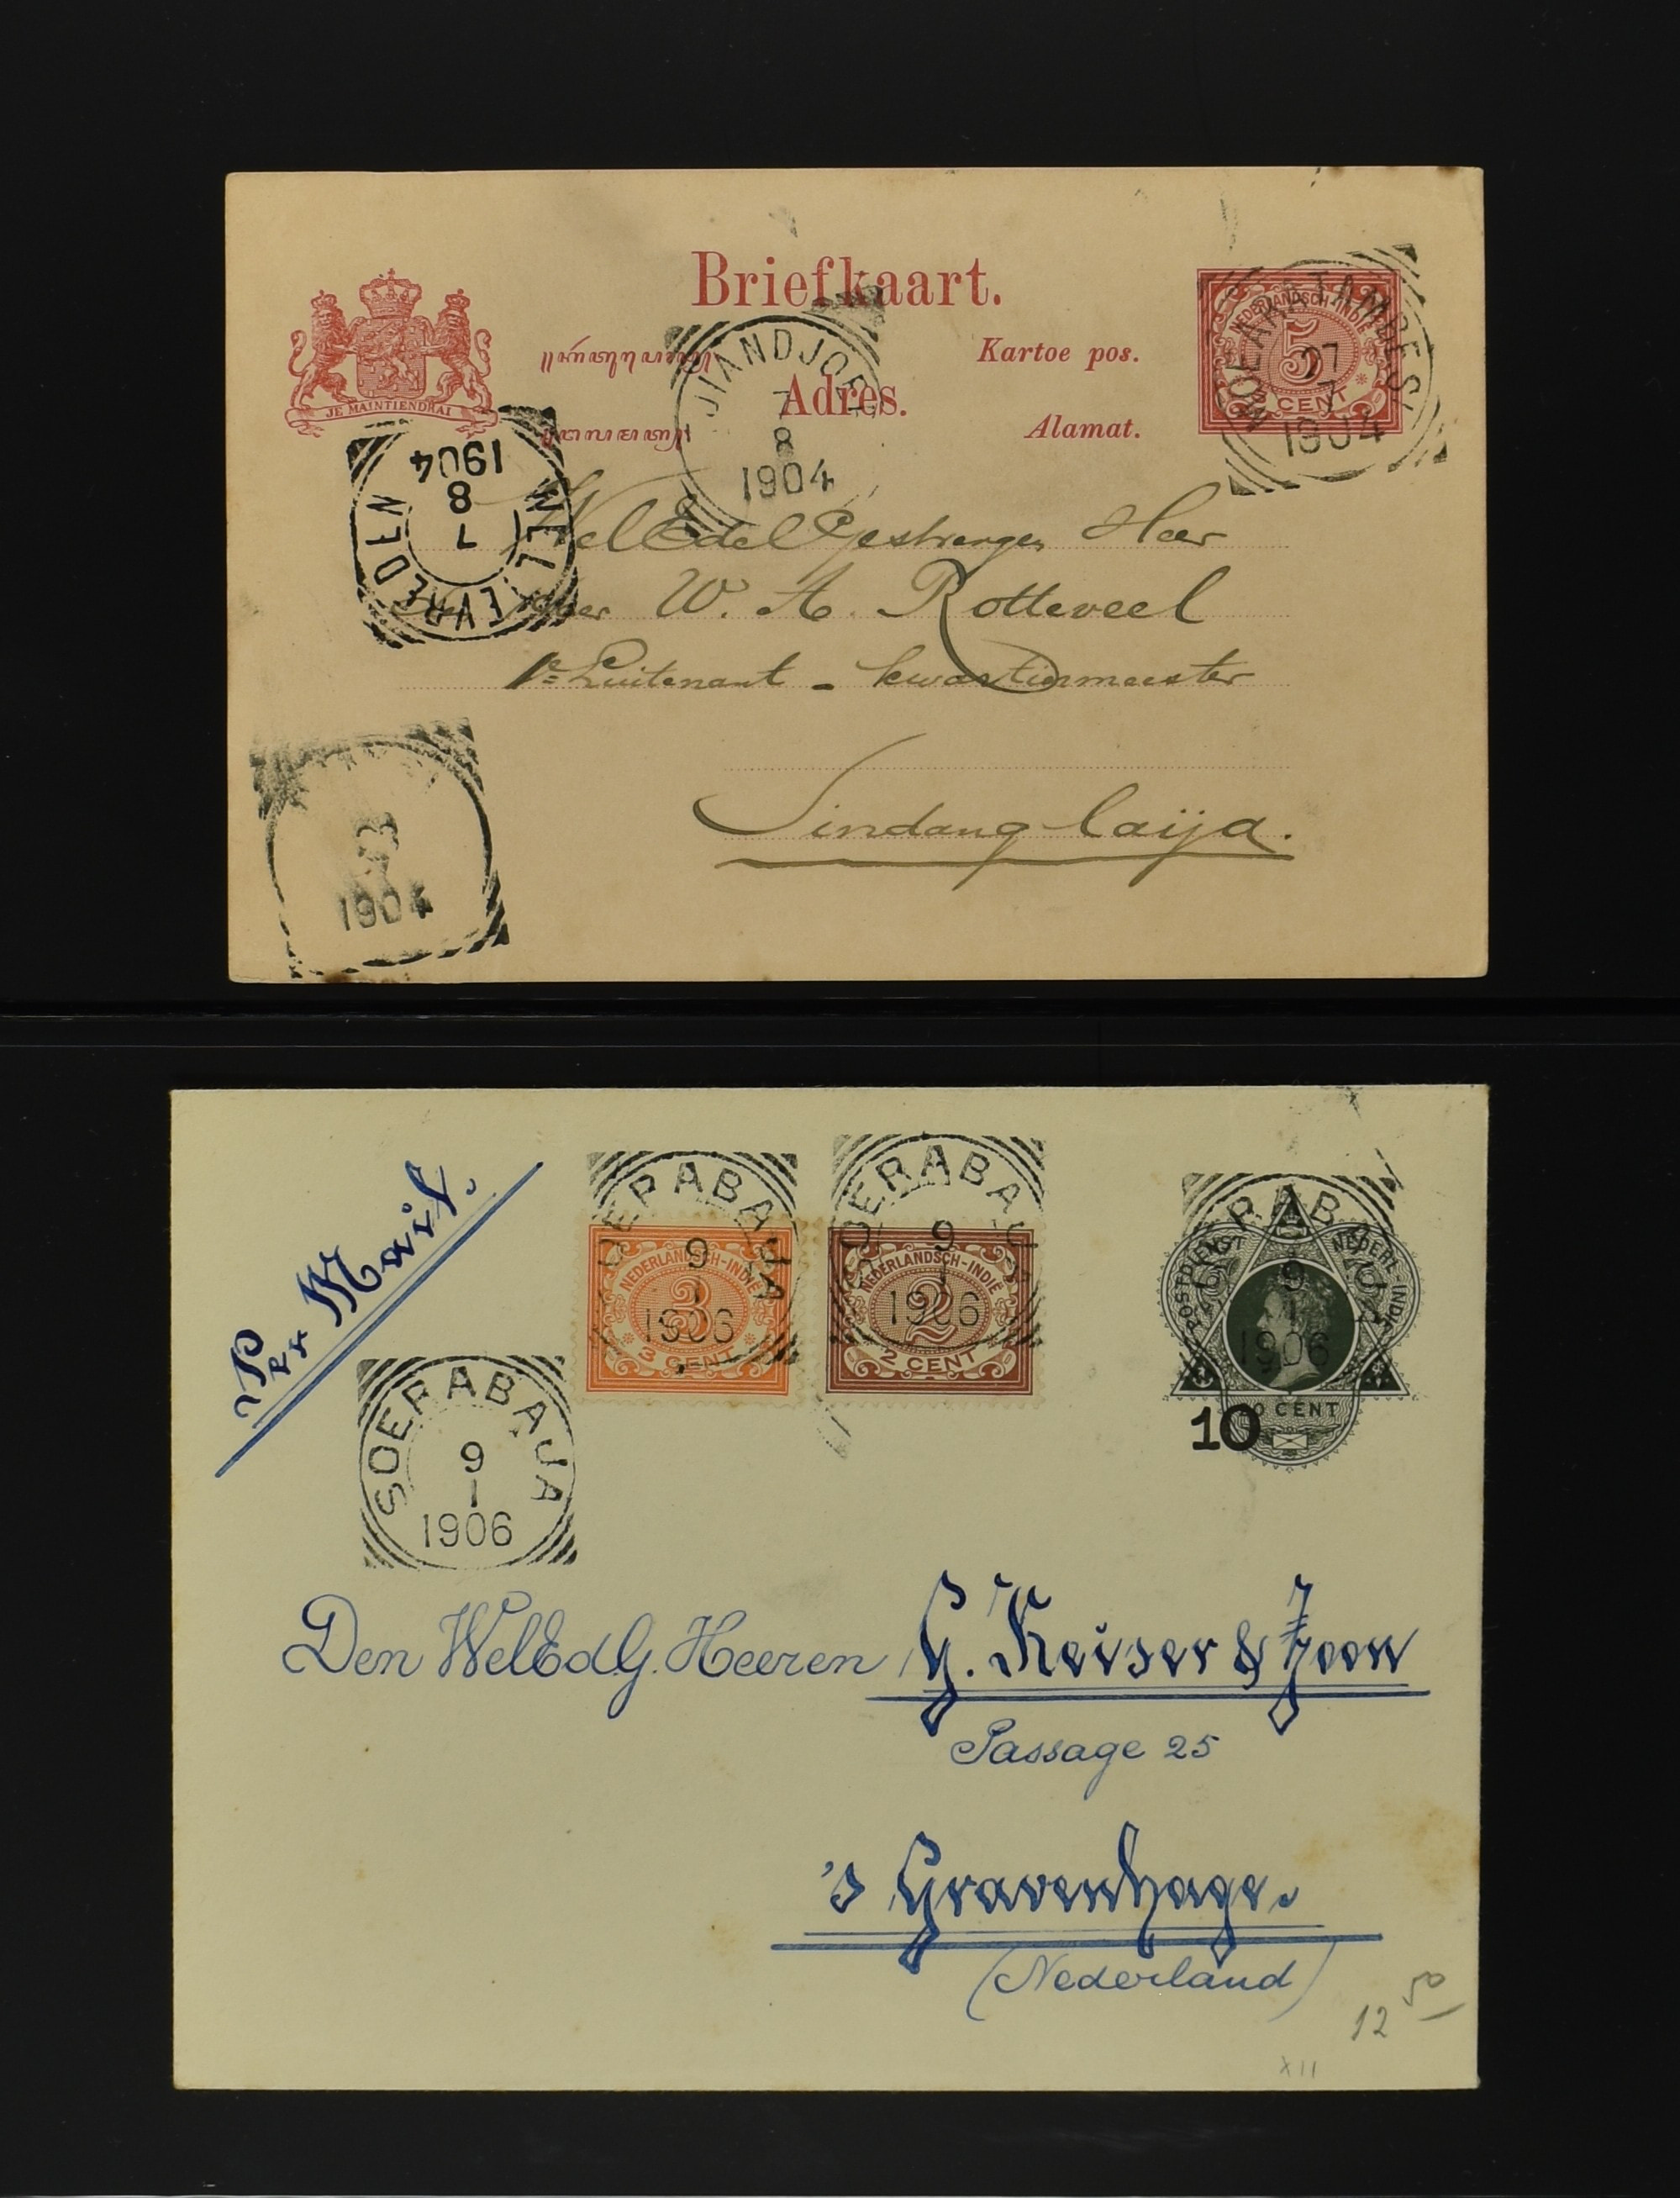 Briefkaart.
Kartoe pos.
Adres.
Alamat.
JE MAINTIENDRAI
NEDERLANDSCH-INDIË
5
5 CENT
MOEARATAMBESI
27
7
1904
TJIANDJOER
7
8
1904
WELTEVREDEN
7
8
1904
1904
WelEdelGestrenge Heer
W. A. Rotteveel
1e Luitenant - kwartiermeester
Sindanglaija.
Per Mail.
SOERABAJA
9
1
1906
NEDERLANDSCH-INDIË
3
3 CENT
SOERABAJA
9
1
1906
NEDERLANDSCH-INDIË
2
2 CENT
SOERABAJA
9
1
1906
POSTDIENST NEDERL-INDIË
20 CENT
10
SOERABAJA
9
1
1906
Den WelEdG. Heeren G. Keiser & Zoon
Passage 25
's Gravenhage.
(Nederland)
12 50
XII